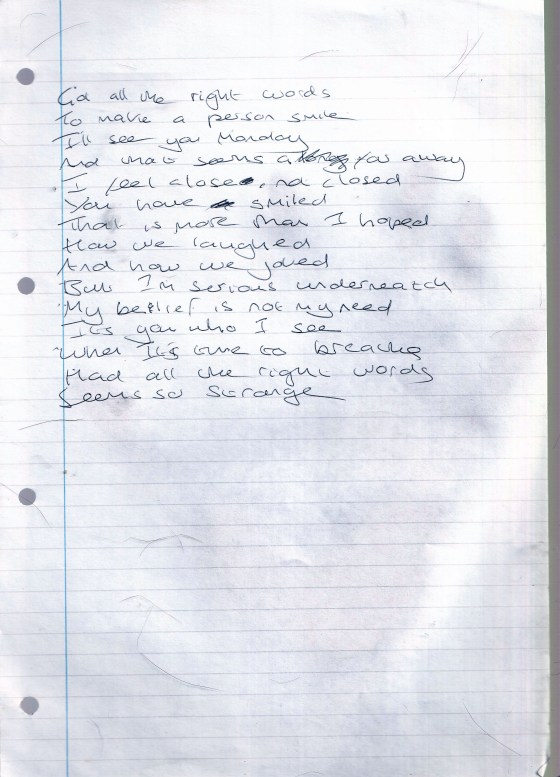 all the right words
To make a person smile
I'll see you Monday
And that seems a far away
I feel close, nd closed
You have smiled
That is more than I hoped
How we laughed
And how we joked
But I'm serious underneath
My beflief is not my need
It's you who I see
When It's time to breathe
Had all the right words
Seems so strange